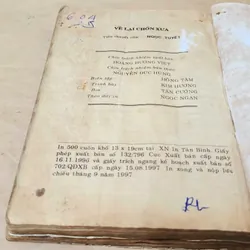 VỀ LẠI CHỐN XƯA
NGỌC TUYẾT
Chịu trách nhiệm xuất bản
HOÀNG HƯỚNG VIỆT
Chịu trách nhiệm bản thảo
NGUYỄN ĐỨC HÙNG
HỒNG TÂM
Trình bày
BÙI HƯƠNG
Bìa
TẤN CƯỜNG
NGỌC NGÂN
In 500 cuốn khổ 13 x 19cm tại XN In Tân Bình. Giấy
phép xuất bản số 132/796 Cục Xuất bản cấp ngày
16.11.1996 và giấy trích ngang kế hoạch xuất bản số
702/QDXB cấp ngày 15.08.1997. In xong và nộp lưu
chiểu tháng 9 năm 1997